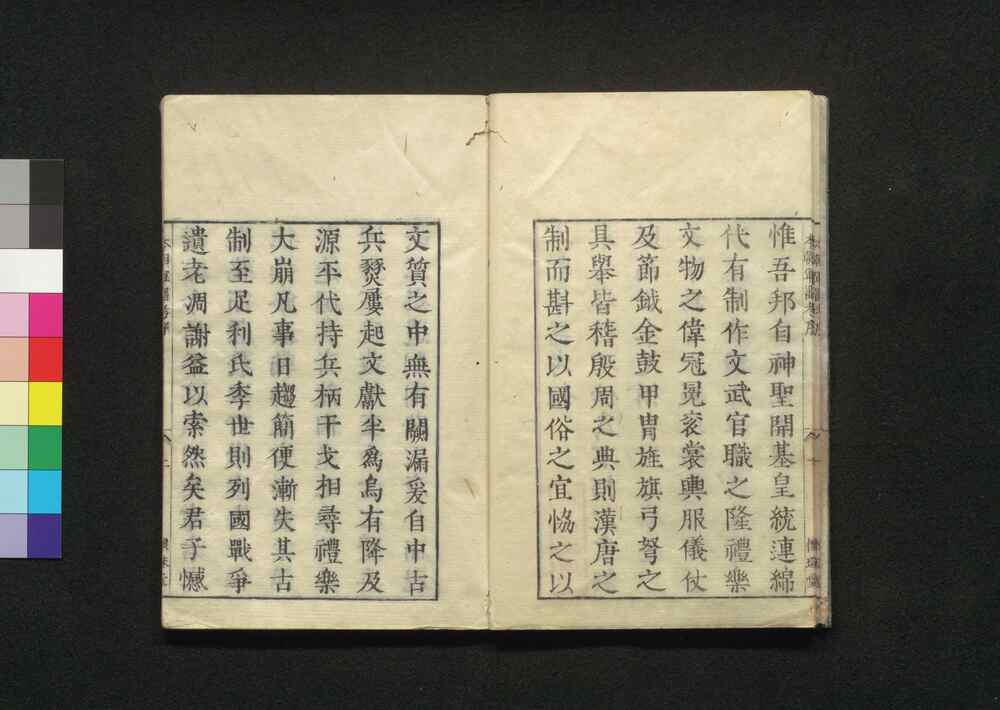 惟吾邦自神聖開基皇統連綿
代有制作文武官職之隆禮樂
文物之偉冠冕衮裳輿服儀仗
及節鉞金鼓甲冑旌旗弓弩之
具擧皆稽殷周之典則漢唐之
制而斟之以國俗之宜恊之以
文質之中無有闕漏爰自中古
兵燹屢起文獻半爲烏有降及
源平代持兵柄干戈相尋禮樂
大崩凡事日趨簡便漸失其古
制至足利氏季世則列國戰爭
遺老凋謝益以索然矣君子憾